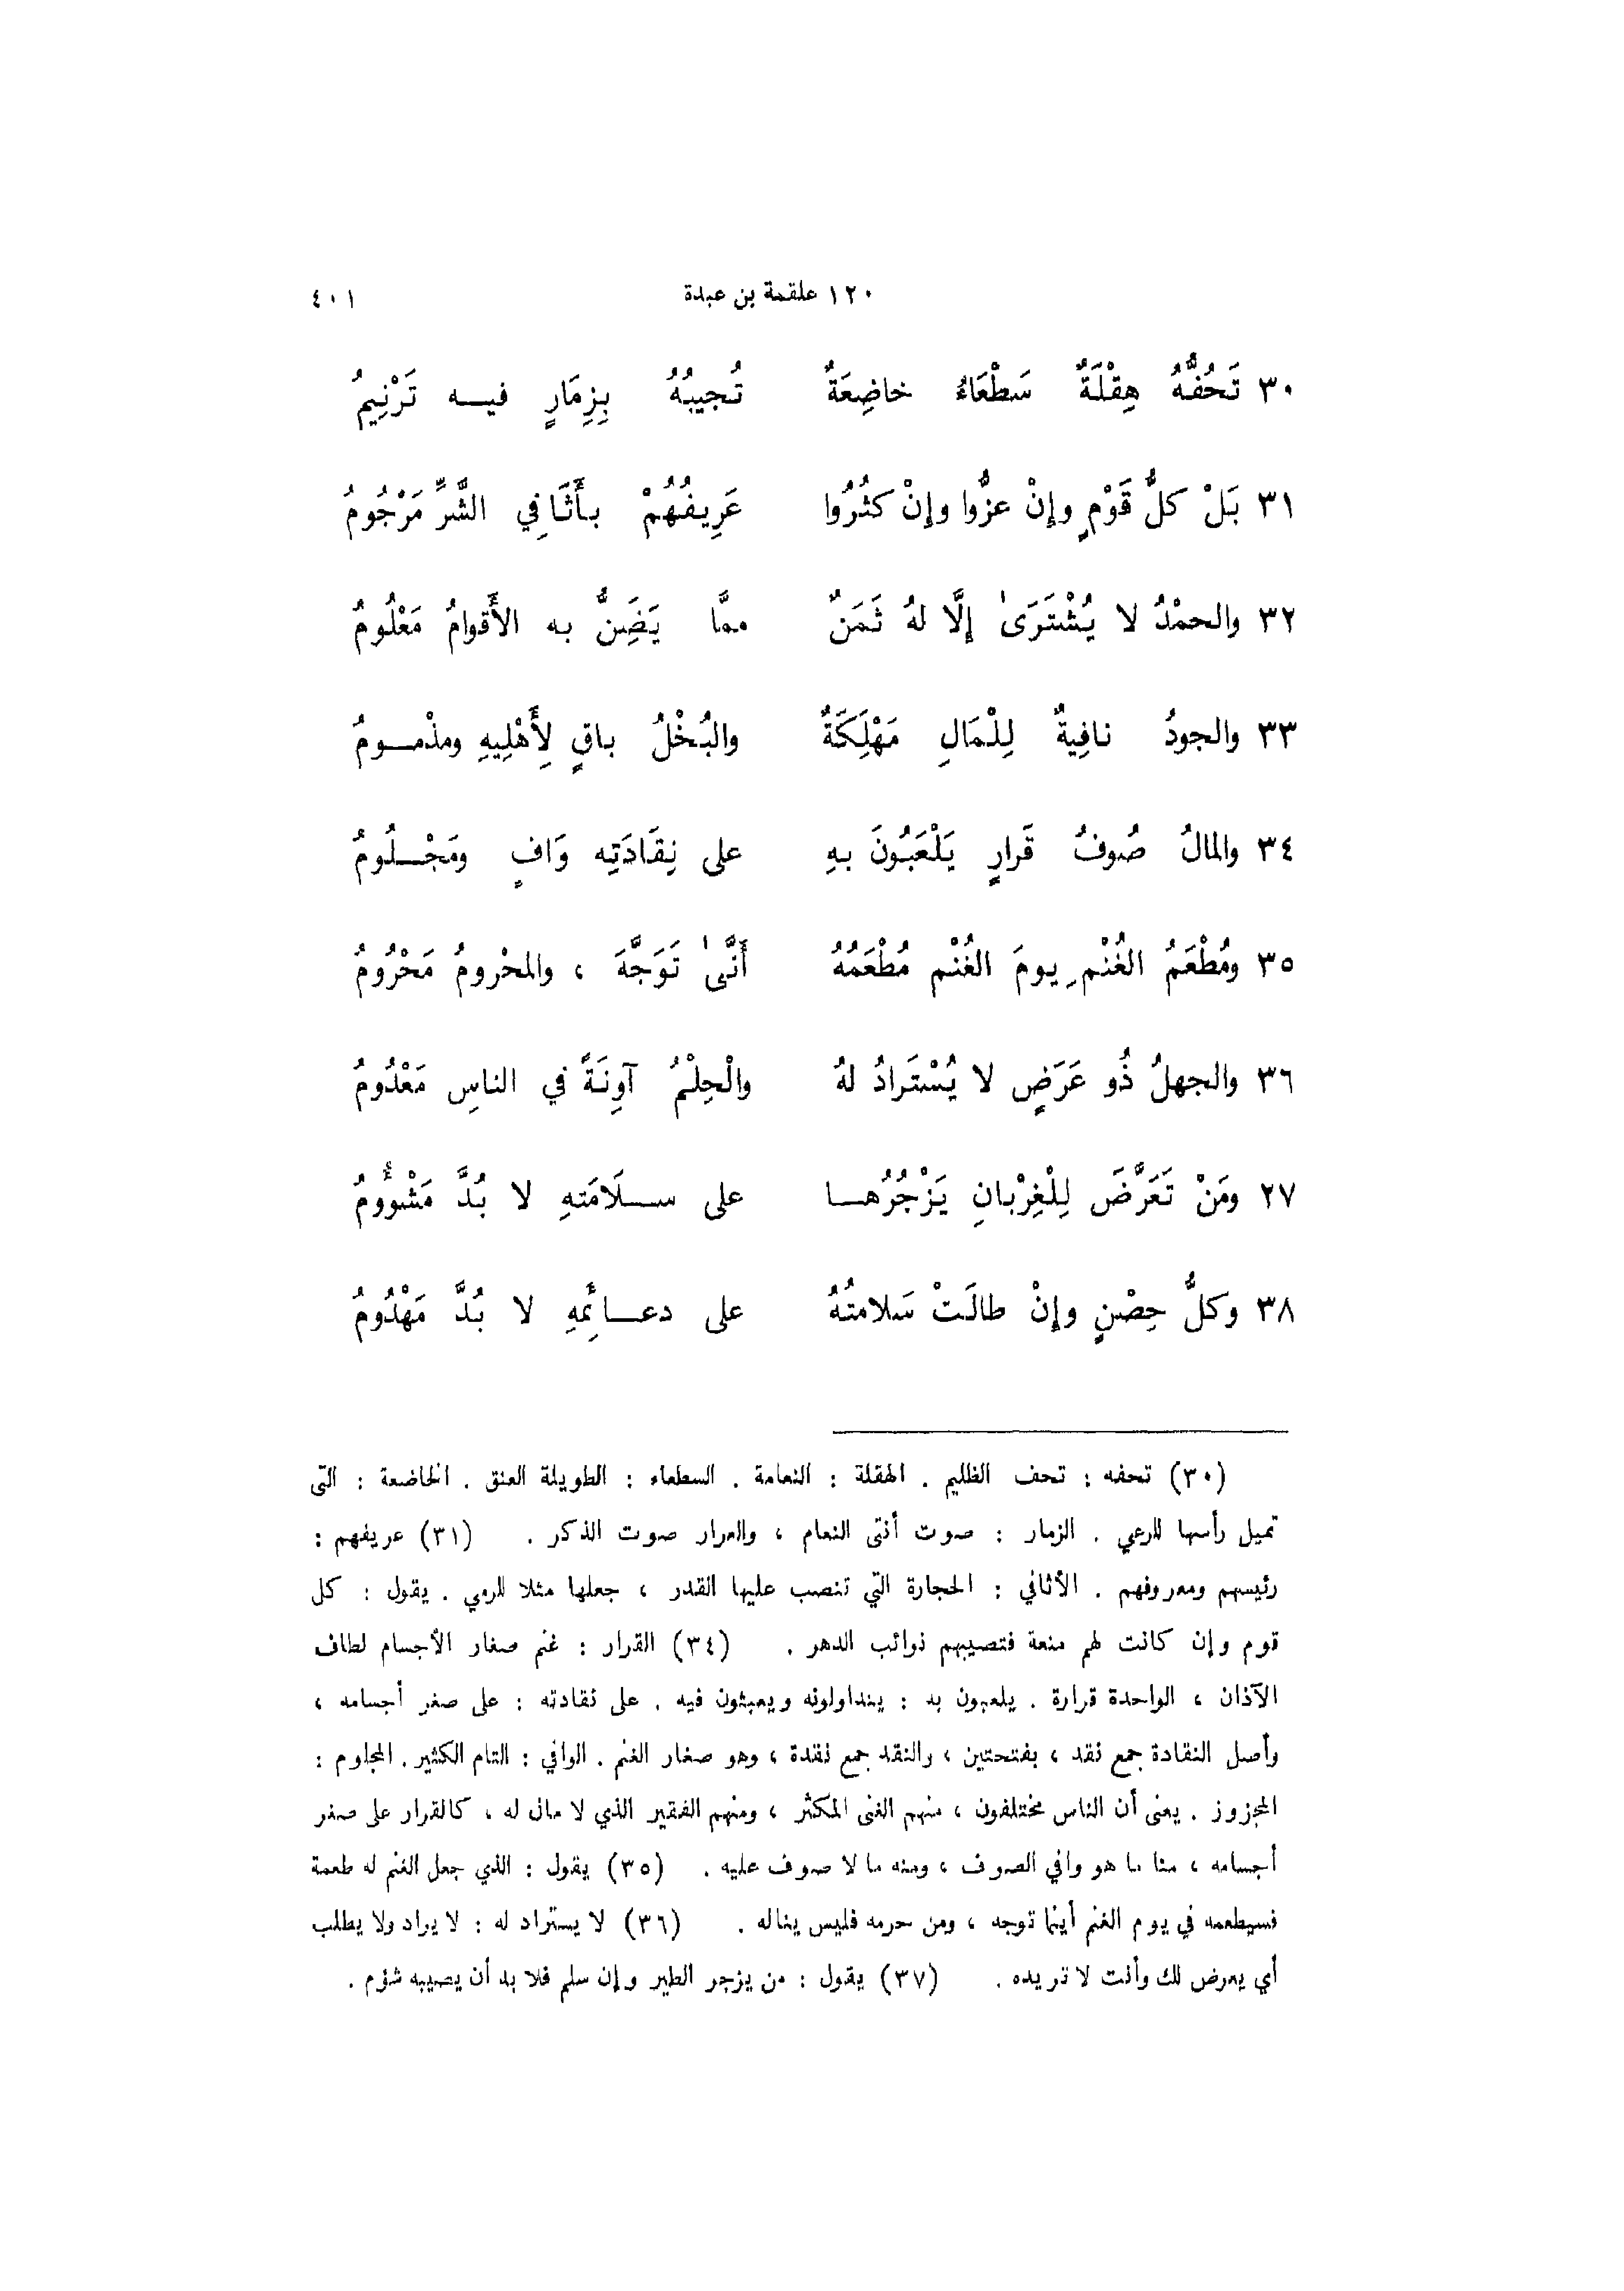 ١٢٠ علقمة بن عبدة ٤٠١
٣٠ تَحُفُّهُ هِقْلَةٌ سَطْعَاءُ خاضِعَةٌ تُجيبُهُ بِزِمَارٍ فيـــه تَرْنِيمُ
٣١ بَلْ كلُّ قَوْمٍ وإنْ عزُّوا وإنْ كثُرُوا عَرِيفُهُمْ بأَثَافِي الشَّرِّ مَرْجُومُ
٣٢ والحمْدُ لا يُشْتَرَىٰ إلَّا لهُ ثَمَنٌ ممَّا يَضَنُّ به الأَقوامُ مَعْلُومُ
٣٣ والجودُ نافِيةٌ لِلْمَالِ مَهْلَكَةٌ والبُخْلُ باقٍ لِأَهْلِيهِ ومذْمـــومُ
٣٤ والمالُ صُوفُ قَرارٍ يَلْعَبُونَ بهِ على نِقَادَتِه وَافٍ ومَجْـــلُومُ
٣٥ ومُطْعَمُ الغُنْمِ يومَ الغُنْمِ مُطْعَمُهُ أَنَّىٰ تَوَجَّهَ ، والمحْرومُ مَحْرُومُ
٣٦ والجهلُ ذُو عَرَضٍ لا يُسْتَرادُ لهُ والْحِلْمُ آوِنَةً في الناسِ مَعْدُومُ
٢٧ ومَنْ تَعَرَّضَ لِلْغِرْبانِ يَزْجُرُهـــا على ســـلَامَتهِ لا بُدَّ مَشْؤُومُ
٣٨ وكلُّ حِصْنٍ وإنْ طالَتْ سَلامتُهُ على دعـــائِمهِ لا بُدَّ مَهْدُومُ
(٣٠) تحفه : تحف الظليم . الهقلة : النعامة . السطعاء : الطويلة العنق . الخاضعة : التى
تميل رأسها للرعي . الزمار : صوت أنثى النعام ، والعرار صوت الذكر . (٣١) عريفهم :
رئيسهم ومعروفهم . الأثافي : الحجارة التي تنصب عليها القدر ، جعلها مثلا للرمي . يقول : كل
قوم وإن كانت لهم منعة فتصيبهم نوائب الدهر . (٣٤) القرار : غنم صغار الأجسام لطاف
الآذان ، الواحدة قرارة . يلعبون به : يتداولونه ويعبثون فيه . على نقادته : على صغر أجسامه ،
وأصل النقادة جمع نقد ، بفتحتين ، والنقد جمع نقدة ، وهو صغار الغنم . الوافي : التام الكثير . المجلوم :
المجزوز . يعنى أن الناس مختلفون ، منهم الغنى المكثر ، ومنهم الفقير الذي لا مال له ، كالقرار على صغر
أجسامه ، منا ما هو وافي الصوف ، ومنه ما لا صوف عليه . (٣٥) يقول : الذي جعل الغنم له طعمة
فسيطعمه في يوم الغنم أينما توجه ، ومن حرمه فليس يناله . (٣٦) لا يستراد له : لا يراد ولا يطلب
أي يعرض لك وأنت لا تريده . (٣٧) يقول : من يزجر الطير وإن سلم فلا بد أن يصيبه شؤم .